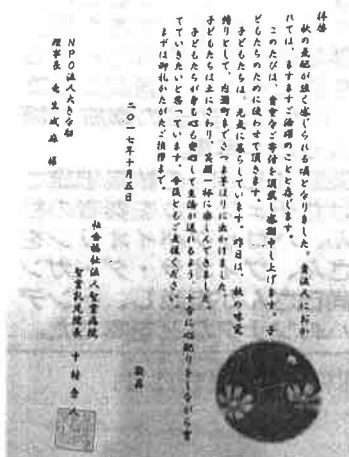 拝啓
秋の気配が強く感じられる頃となりました。貴法人におか
れては、ますますご活躍のことと存じます。
このたびは、貴重なご寄付を頂戴し感謝申し上げます。子ど
もたちのために使わせて頂きます。
子どもたちは、元気に暮らしています。昨日は、秋の味覚
狩りとして、内灘町までさつま芋ほりに出かけました。
子どもたちは土にさわり、笑顔一杯に楽しんできました。
子どもたちが身も心も安心して生活が送れるよう、十分に心配りをしながら育
てていきたいと思っています。今後ともご支援ください。
まずは御礼かたがたご挨拶まで。
敬具
二〇一七年十月五日
社会福祉法人聖霊病院
聖霊乳児院長 中村
NPO法人大きな
理事長 竜生 様